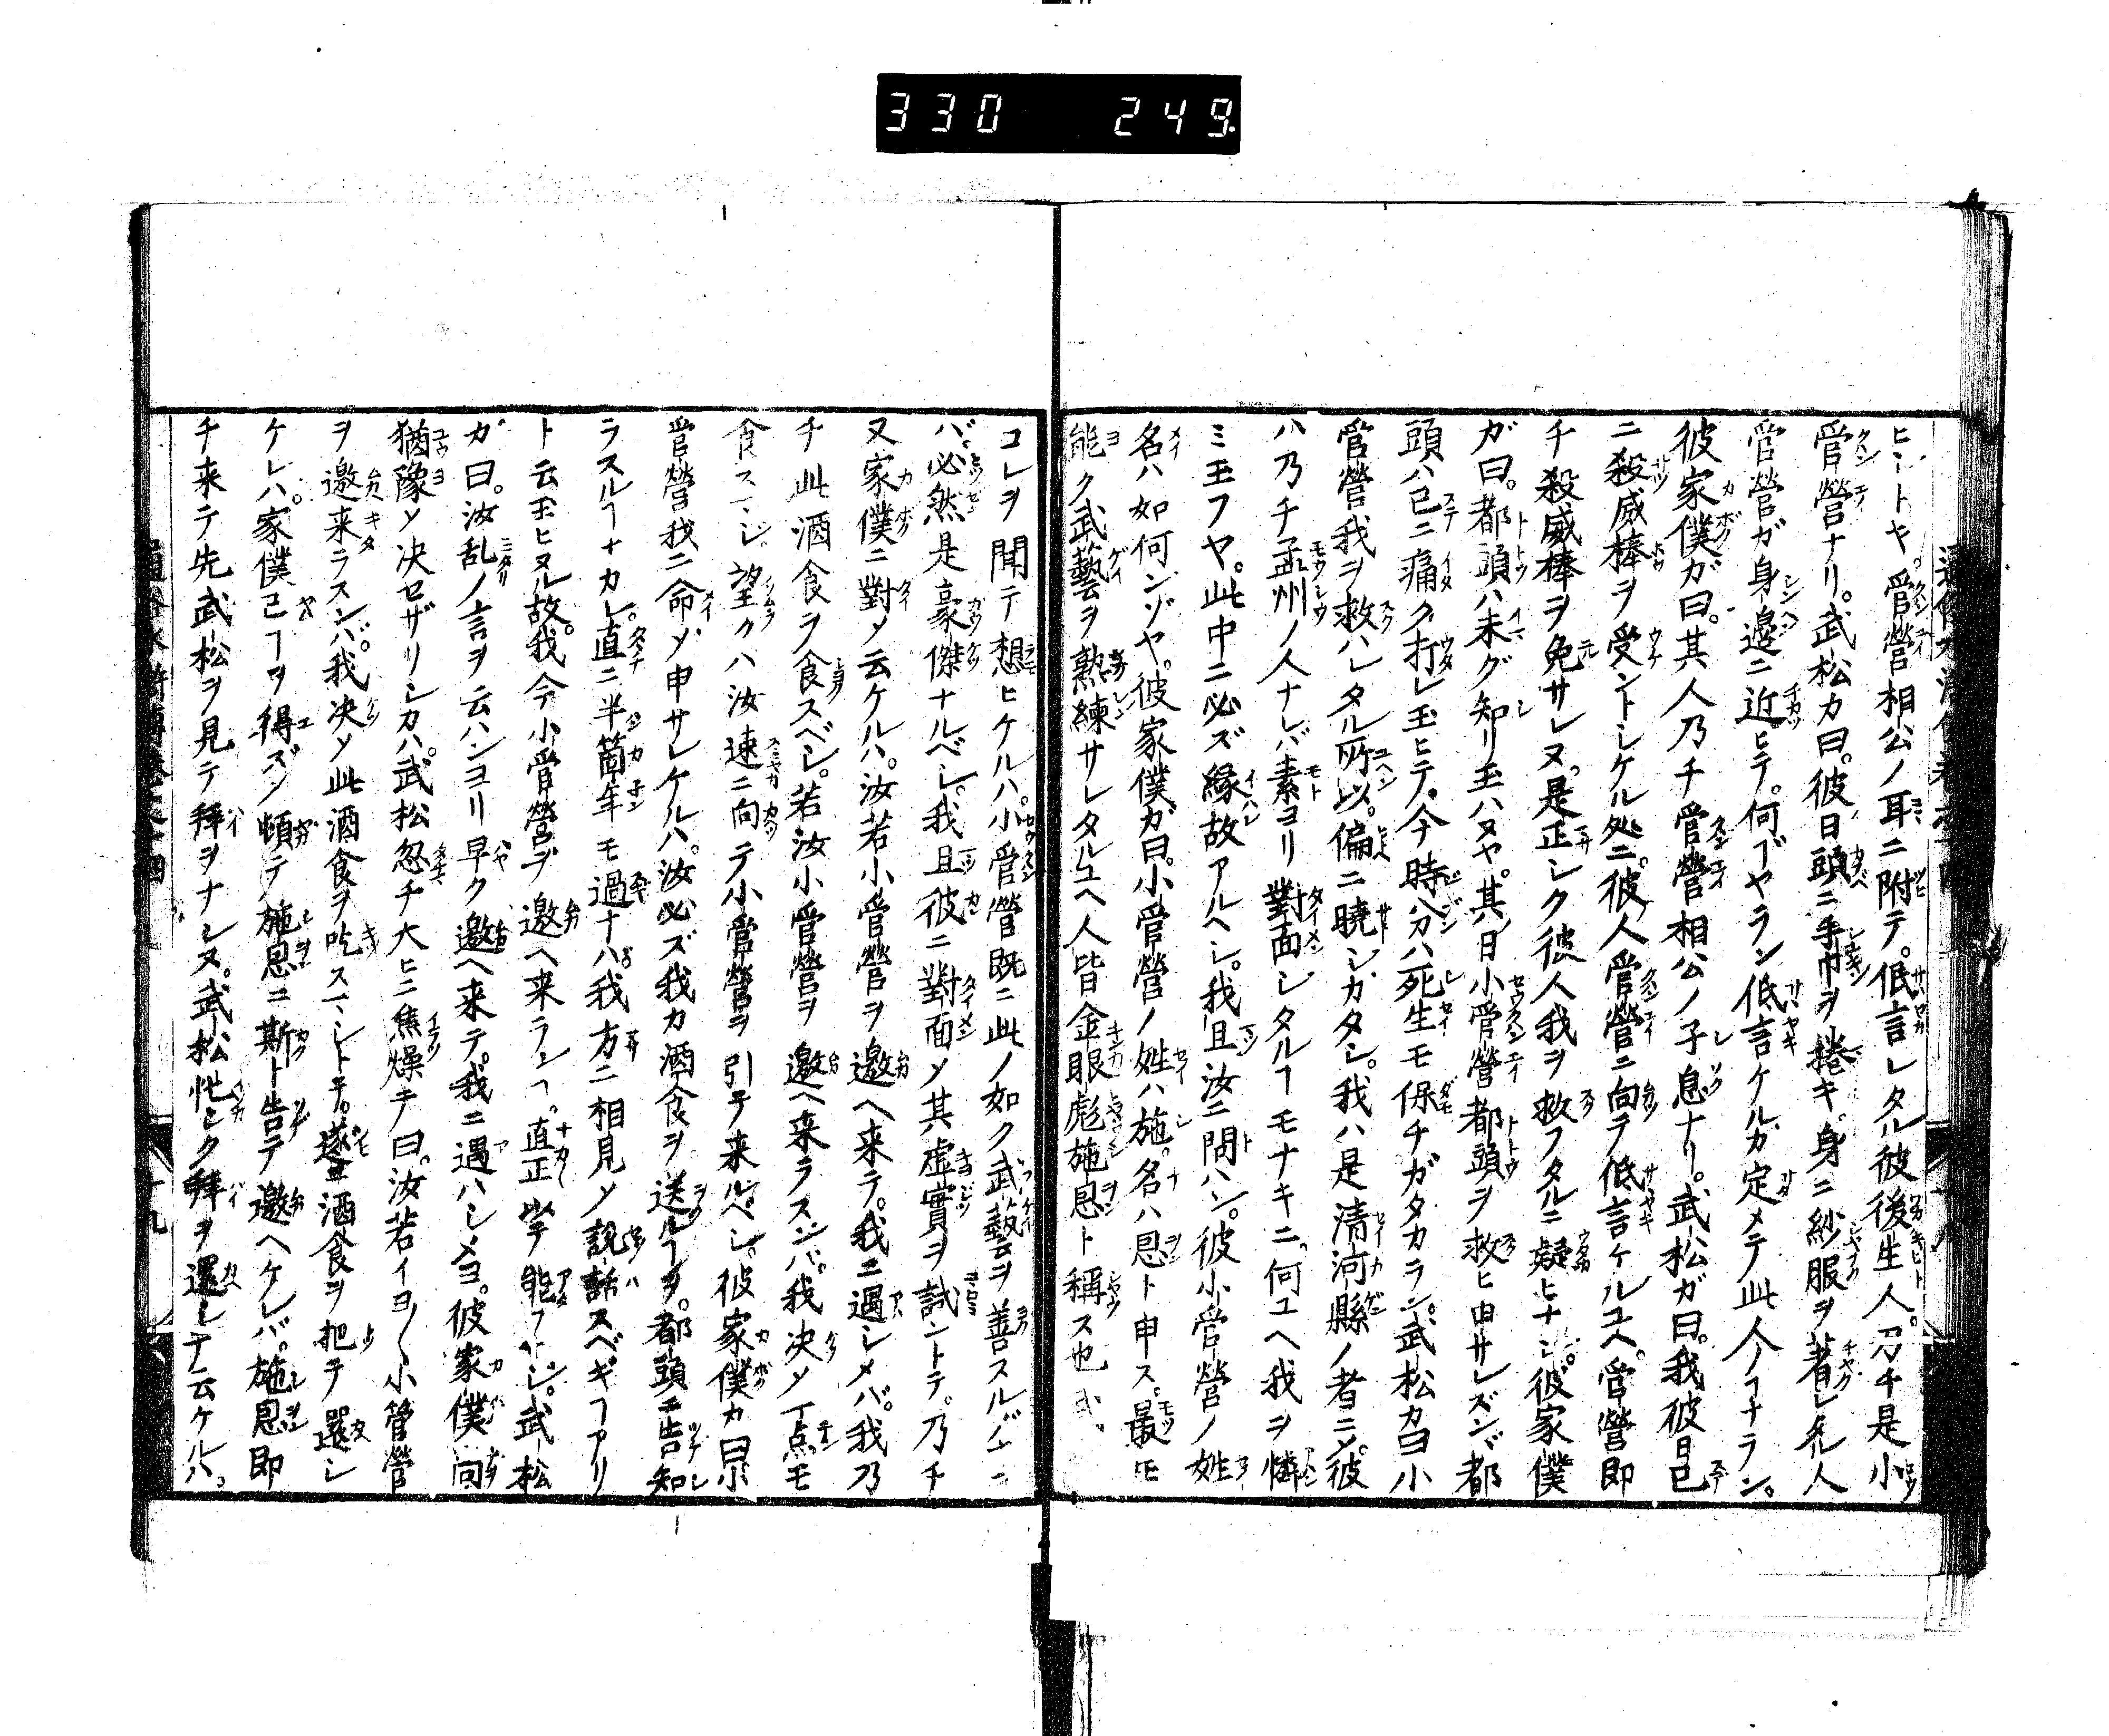 330 249.
ヒシトヤ。管營相公ノ耳ニ附テ。低言レタル彼後生人。乃チ是小
管營ナリ。武松カ曰。彼日頭ニ手巾ヲ捲キ。身ニ紗服ヲ著レタル人
管營ガ身邊ニ近ヒテ。何ヿヤラン低言ケルガ定メテ此人ノヿナラン。
彼家僕ガ曰。其人乃チ管營相公ノ子息ナリ。武松ガ曰。我彼日已
ニ殺威棒ヲ受ントレケル処ニ。彼人管營ニ向テ低言ケルユヘ。管營即
チ殺威棒ヲ免サレヌ。是正レク彼人我ヲ救フタルニ疑ヒナシ。彼家僕
ガ曰。都頭ハ未グ知リ玉ハヌヤ。其日小管營都頭ヲ救ヒ申サレズンバ都
頭ハ已ニ痛ク打レ玉ヒテ。今時分ハ死生モ保チガタカラン。武松カ曰小
管營我ヲ救ハレタル所以。偏ニ曉シカタシ。我ハ是清河縣ノ者ニメ。彼
ハ乃チ孟州ノ人ナレバ素ヨリ對面シタルヿモナキニ。何ユヘ我ヲ憐
ミ玉フヤ。此中ニ必ズ縁故アルヘシ。我且汝ニ問ハン。彼小管營ノ姓
名ハ如何ンゾヤ。彼家僕ガ曰。小管營ノ姓ハ施。名ハ恩ト申ス。最モ
能ク武藝ヲ熟練サレタルユヘ人皆金眼彪施恩ト稱ス也武
コレヲ聞テ想ヒケルハ。小管營既ニ此ノ如ク武藝ヲ善スルナレ
バ。必然是豪傑ナルベシ。我且彼ニ對面メ其虚實ヲ試ントテ。乃チ
又家僕ニ對メ云ケルハ。汝若小管營ヲ邀ヘ来テ。我ニ遇シメバ。我乃
チ此酒食ヲ食スベシ。若汝小管營ヲ邀ヘ来ラスンバ。我决メ一点モ
食スマシ。望クハ汝速ニ向テ小管營ヲ引テ来ルベシ。彼家僕カ曰小
管營我ニ命メ。申サレケルハ。汝必ズ我カ酒食ヲ送ルヿヲ。都頭エ告知
ラスルヿナカレ。直ニ半箇年モ過ナバ。我方ニ相見メ説話スベギヿアリ
ト云玉ヒヌル故。我今小管營ヲ邀ヘ来ラシヿ。直正ニ能フマジ。武松
ガ曰。汝乱ノ言ヲ云ハンヨリ早ク邀ヘ来テ。我ニ遇ハシメヨ。彼家僕向
猶豫メ决セザリシカバ。武松忽チ大ヒニ焦燥チ曰。汝若イヨ〱小管營
ヲ邀来ラスンバ。我决メ此酒食ヲ吃スマシトテ。遂ニ酒食ヲ把テ還シ
ケレハ。家僕已ヿヲ得ズメ頓テ施恩ニ斯ト告テ邀ヘケレバ。施恩即
チ来テ先武松ヲ見テ拜ヲナシヌ。武松忙シク拜ヲ還シテ云ケルハ。